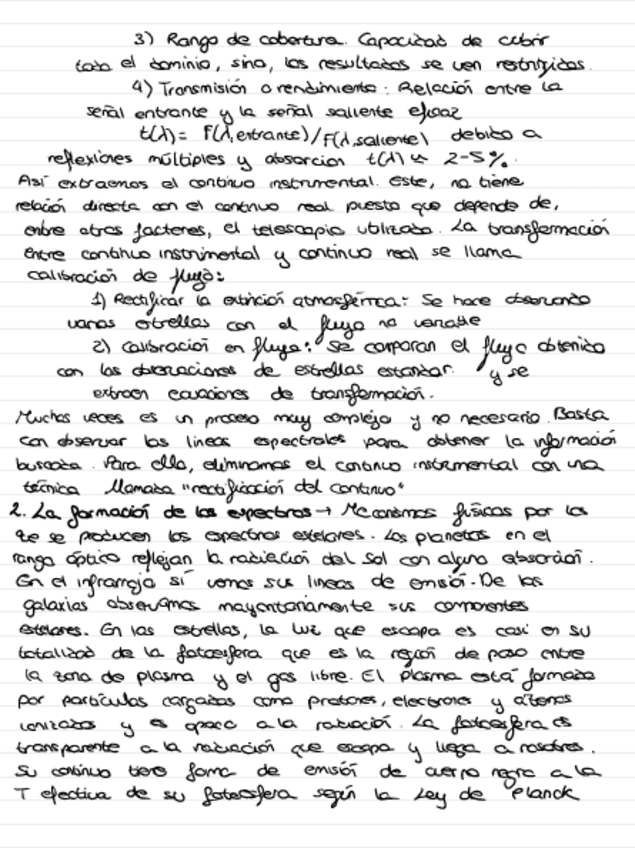 3) Rango de cobertura. Capacidad de cubrir
todo el dominio, sino, los resultados se ven restringidos.
4) Transmisión o rendimiento: Relación entre la
señal entrante y la señal saliente eficaz
t(λ) = F(λ,entrante)/F(λ,saliente) debido a
reflexiones múltiples y absorcion t(λ) ≈ 2-5%.
Así extraemos el continuo instrumental. Este, no tiene
relación directa con el continuo real puesto que depende de,
entre otros factores, el telescopio utilizado. La transformación
entre continuo instrumental y continuo real se llama
calibración de flujo:
1) Rectificar la extinción atmosférica: Se hace observando
varias estrellas con el flujo no variable
2) Calibración en flujo: Se comparan el flujo obtenido
con las observaciones de estrellas estandar. y se
extraen ecuaciones de transformación.
Muchas veces es un proceso muy complejo y no necesario. Basta
con observar las líneas espectrales para obtener la información
buscada. Para ello, eliminamos el continuo instrumental con una
técnica llamada "rectificación del continuo"
2. La formación de los espectros → Mecanismos físicos por los
que se producen los espectros estelares. Los planetas en el
rango óptico reflejan la radiación del Sol con alguna absorción.
En el infrarrojo sí vemos sus líneas de emisión. De las
galaxias observamos mayoritariamente sus componentes
estelares. En las estrellas, la luz que escapa es casi en su
totalidad de la fotoesfera que es la región de paso entre
la zona de plasma y el gas libre. El plasma está formado
por partículas cargadas como protones, electrones y átomos
ionizados y es opaco a la radiación. La fotoesfera es
transparente a la radiación que escapa y llega a nosotros.
Su continuo tiene forma de emisión de cuerpo negro a la
T efectiva de su fotoesfera según la Ley de Planck